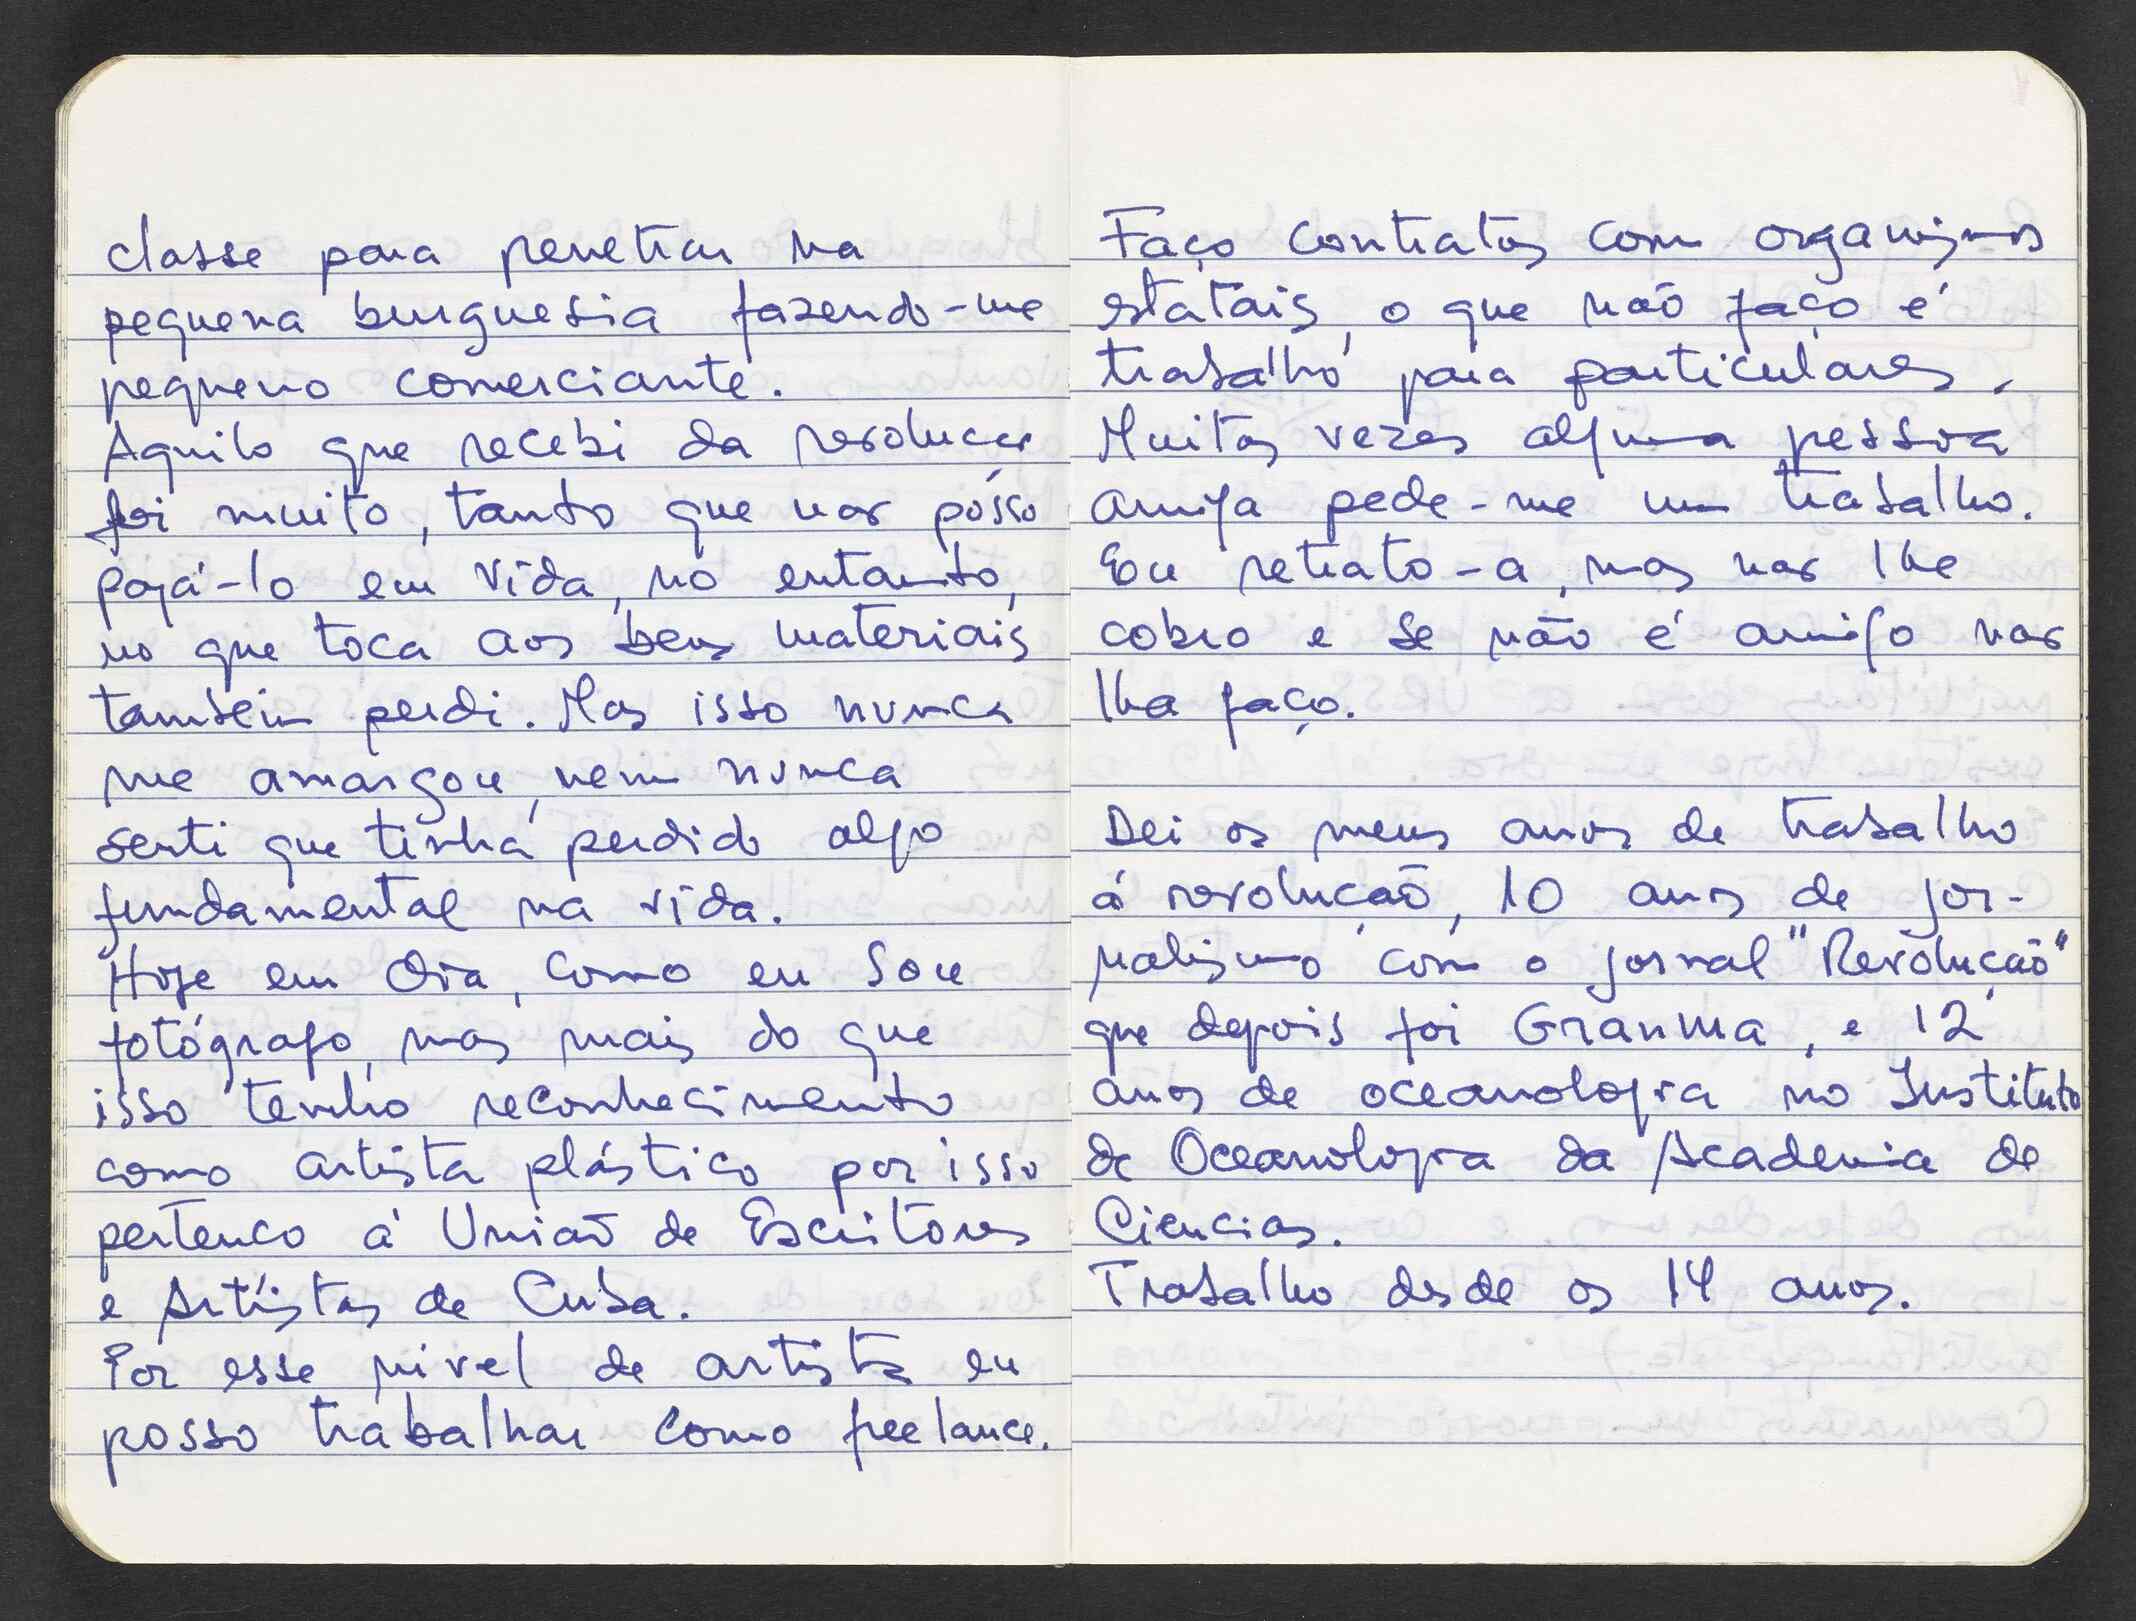 classe para penetrar na
pequena burguesia fazendo-me
pequeno comerciante.
Aquilo que recebi da revolucao
foi muito, tanto que nao posso
pagá-lo em vida, no entanto,
no que toca aos bens materiais
tambem perdi. Mas isso nunca
me amargou, nem nunca
senti que tinha perdido algo
fundamental na vida.
Hoje em dia, como eu sou
fotógrafo, mas mais do que
isso tenho reconhecimento
como artista plástico por isso
pertenco á União de Escritores
e Artistas de Cuba.
Por esse nivel de artista eu
posso trabalhar como freelance.
Faço contratos com organismos
estatais, o que não faço é
trabalho para particulares.
Muitas vezes alguma pessoa
amiga pede-me um trabalho.
Eu retrato-a, mas nao lhe
cobro e se não é amigo nao
lha faço.
Dei os meus anos de trabalho
á revolução, 10 anos de jor-
nalismo com o jornal "Revolução"
que depois foi Granma, e 12
anos de oceanologia no Instituto
de Oceanologia da Academia de
Ciencias.
Trabalho desde os 14 anos.